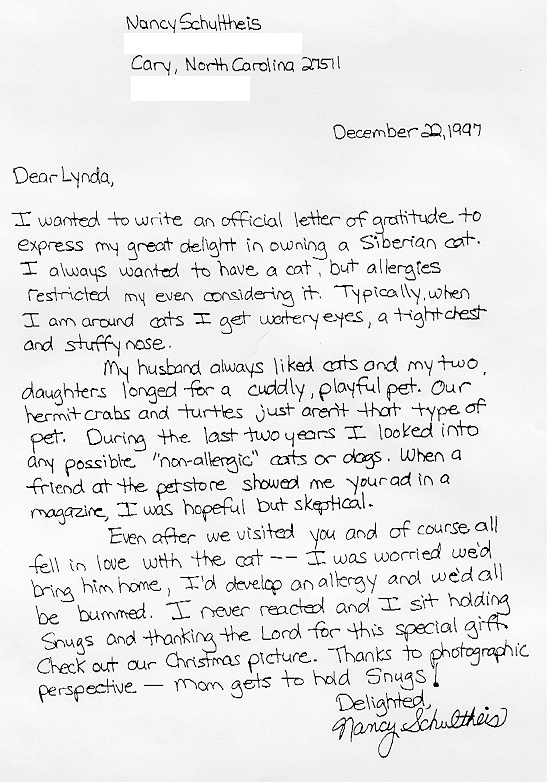 Nancy Schultheis
Cary, North Carolina 27511
December 22, 1997
Dear Lynda,
I wanted to write an official letter of gratitude to
express my great delight in owning a Siberian cat.
I always wanted to have a cat, but allergies
restricted my even considering it. Typically, when
I am around cats I get watery eyes, a tight chest
and stuffy nose.
My husband always liked cats and my two
daughters longed for a cuddly, playful pet. Our
hermit crabs and turtles just aren't that type of
pet. During the last two years I looked into
any possible "non-allergic" cats or dogs. When a
friend at the petstore showed me your ad in a
magazine, I was hopeful but skeptical.
Even after we visited you and of course all
fell in love with the cat -- I was worried we'd
bring him home, I'd develop an allergy and we'd all
be bummed. I never reacted and I sit holding
Snugs and thanking the Lord for this special gift.
Check out our Christmas picture. Thanks to photographic
perspective — Mom gets to hold Snugs!
Delighted,
Nancy Schultheis